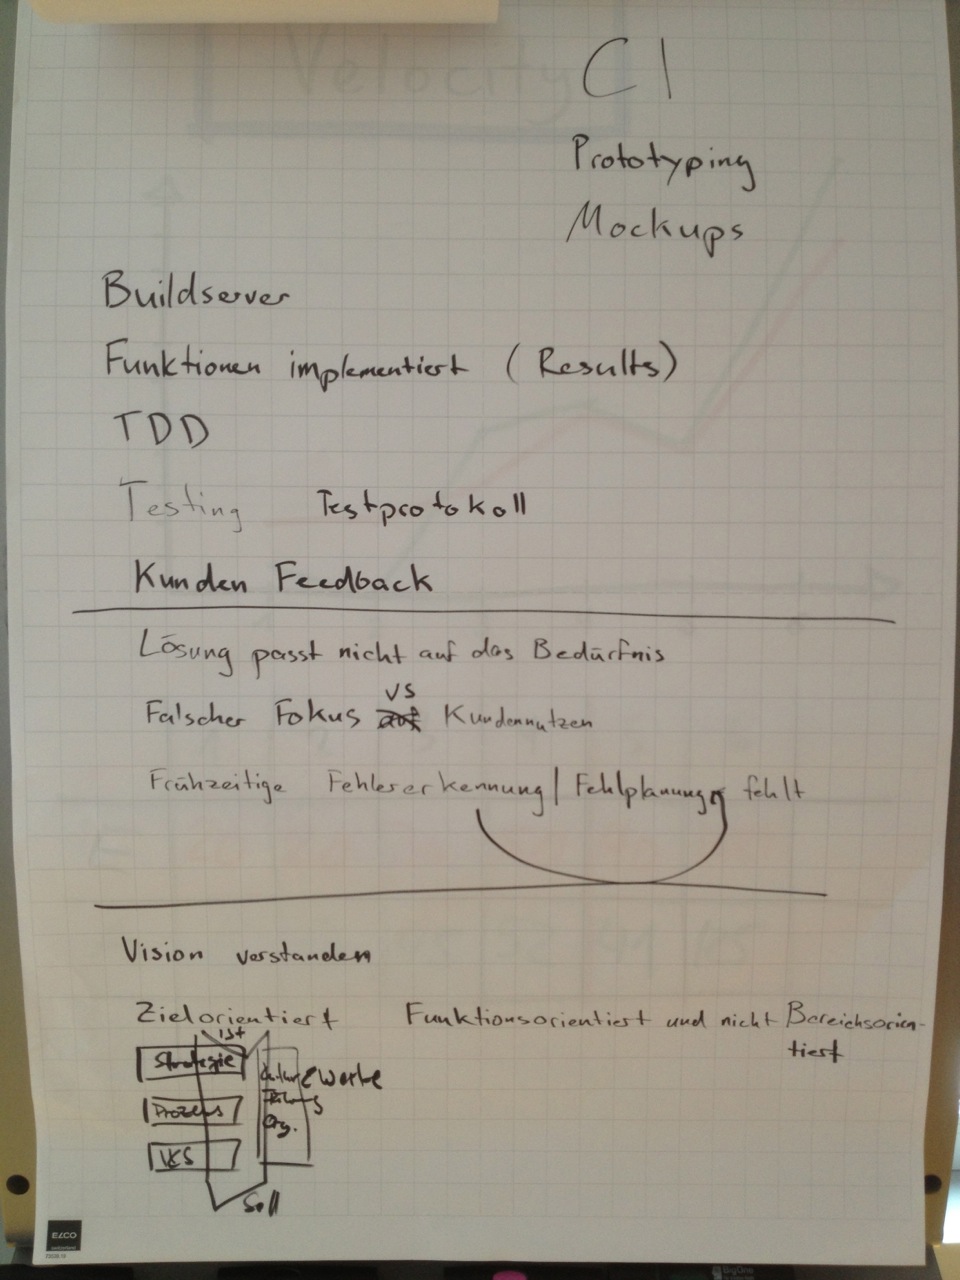 Velocity
CI
Prototyping
Mockups
Buildserver
Funktionen implementiert (Results)
TDD
Testing Testprotokoll
Kunden Feedback
Lösung passt nicht auf das Bedürfnis
Falscher Fokus vs Kundennutzen
Frühzeitige Fehlererkennung/Fehlplanung fehlt
Vision verstanden
Zielorientiert Funktionsorientiert und nicht Bereichsorien-
tiert
Ist
Strategie
Werte
Prozess
Org.
Soll
ELCO